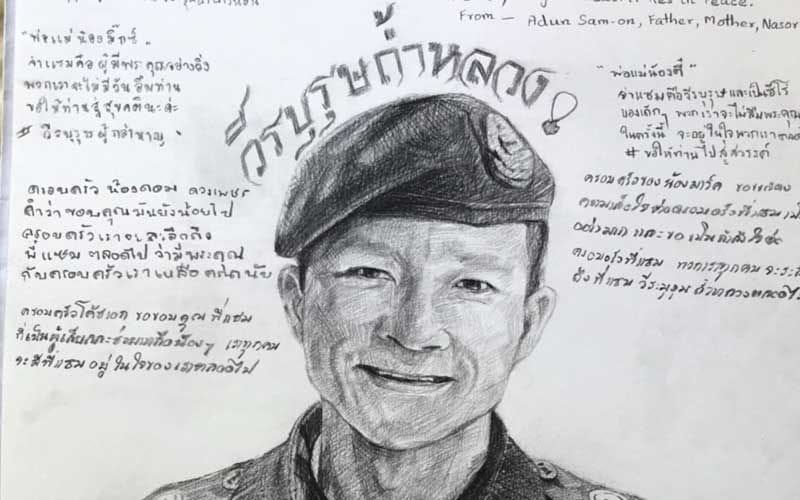 in Peace.
From — Adun Sam-on, Father, Mother, Nasor
วีรบุรุษถ้ำหลวง
"พ่อแม่ น้องมิ๊กซ์"
จ่าแซมคือ ผู้มีพระคุณอย่างยิ่ง
พวกเราจะไม่มีวันลืมท่าน
ขอให้ท่านสู่สุคตินะค่ะ
# วีรบุรุษผู้กล้าหาญ
ครอบครัว น้องดอม ดวงเพชร
คำว่าขอบคุณมันยังน้อยไป
ครอบครัวเราจะระลึกถึง
พี่แซม ตลอดไป ว่ามีพระคุณ
กับครอบครัวเราเหลือคณานับ
ครอบครัวโค้ชเอก ขอขอบคุณ พี่แซม
ที่เป็นผู้เสียสละช่วยเหลือน้องๆ เราทุกคน
จะมีพี่แซมอยู่ในใจของเราตลอดไป
"พ่อแม่น้องตี๋"
จ่าแซมคือวีรบุรุษและเป็นฮีโร่
ของเด็กๆ พวกเราจะไม่ลืมพระคุณ
ในครั้งนี้ จะอยู่ในใจพวกเราตลอด
# ขอให้ท่านไปสู่สวรรค์
ครอบครัวของน้องมาร์ค ขอแสดง
ความเสียใจต่อครอบครัวพี่แซม
อย่างมาก และขอเป็นกำลังใจ
ครอบครัวพี่แซม พวกเราทุกคน
ถึงพี่แซม วีรบุรุษ ถ้ำหลวงตลอดไป